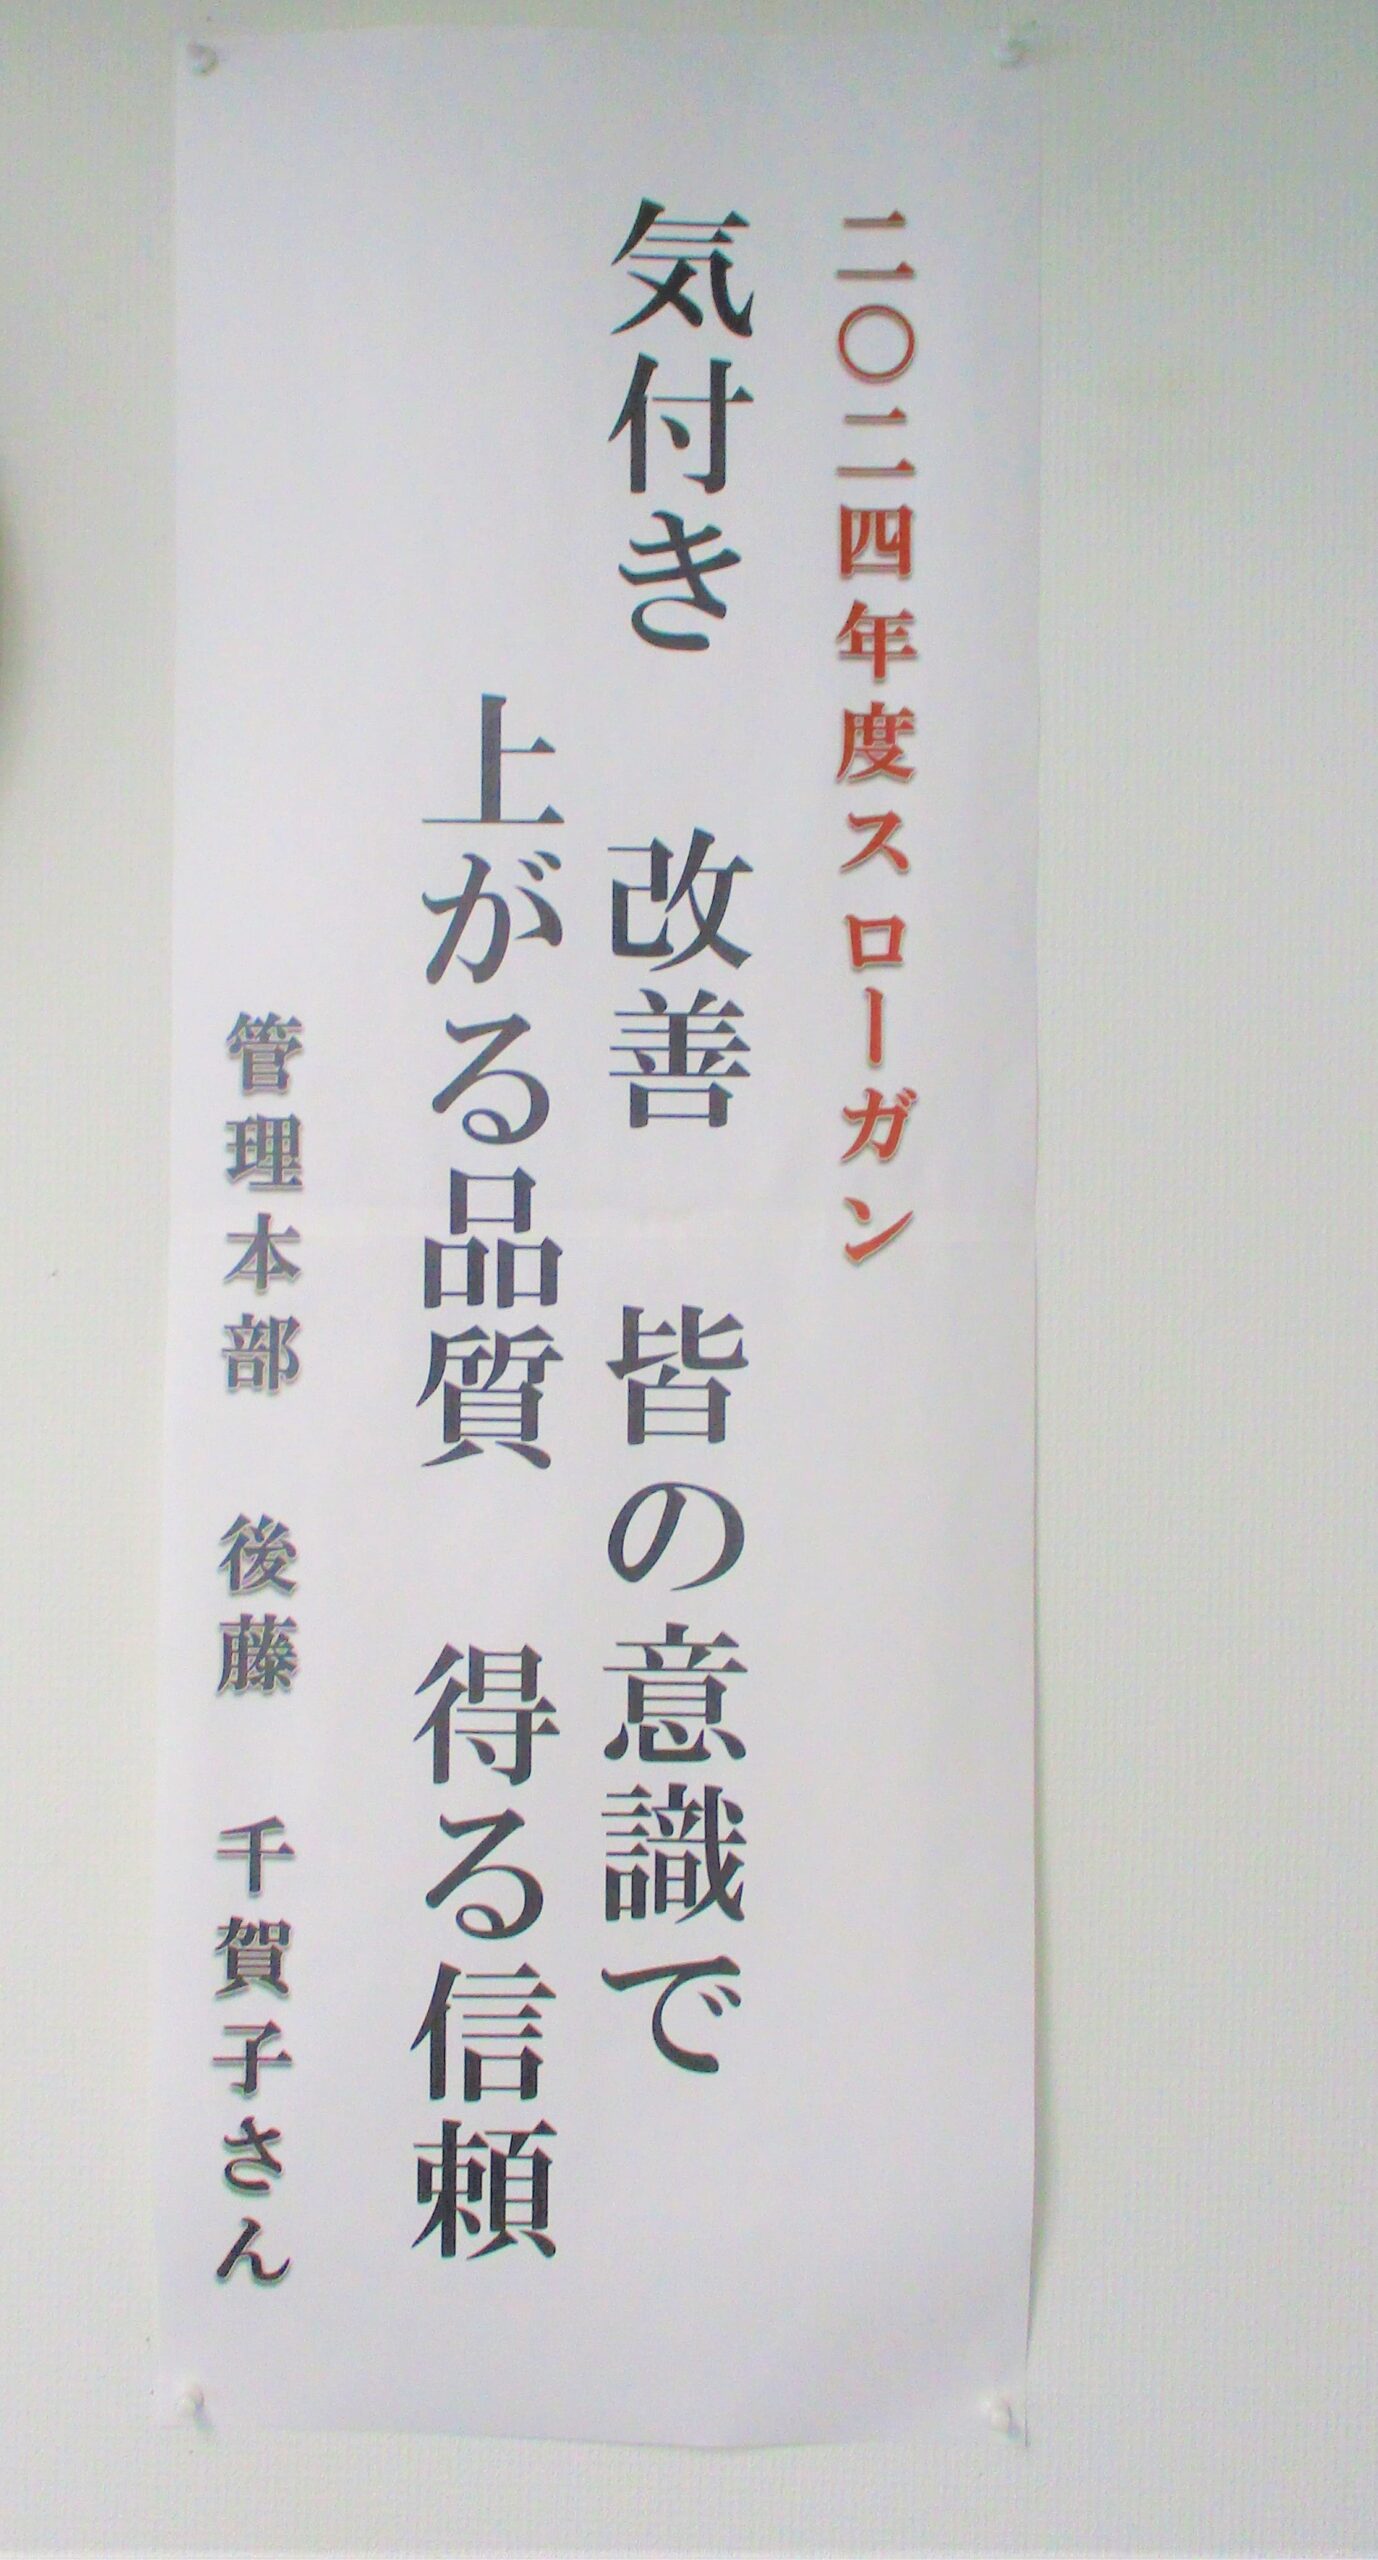 二〇二四年度スローガン
気付き　改善　皆の意識で
上がる品質　得る信頼
管理本部　後藤　千賀子さん